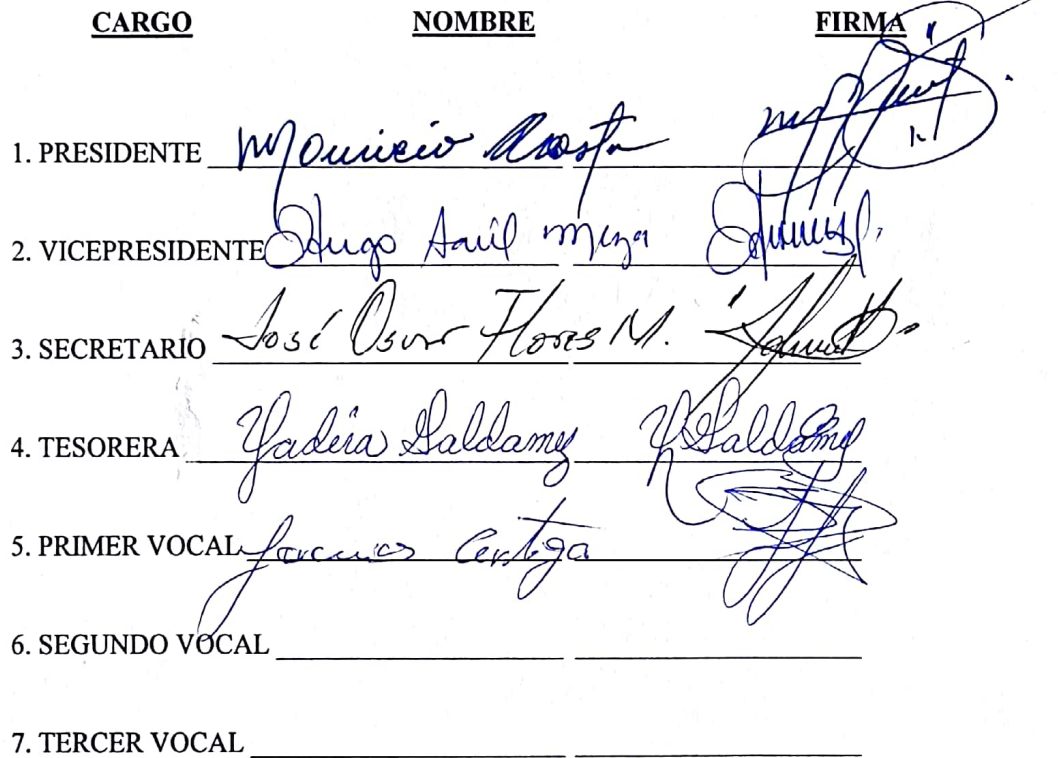 CARGO NOMBRE FIRMA
1. PRESIDENTE Mauricio Acosta
2. VICEPRESIDENTE Hugo Saúl Meza
3. SECRETARIO José Oscar Flores M.
4. TESORERA Yadira Saldamy Y Saldamy
5. PRIMER VOCAL
6. SEGUNDO VOCAL
7. TERCER VOCAL